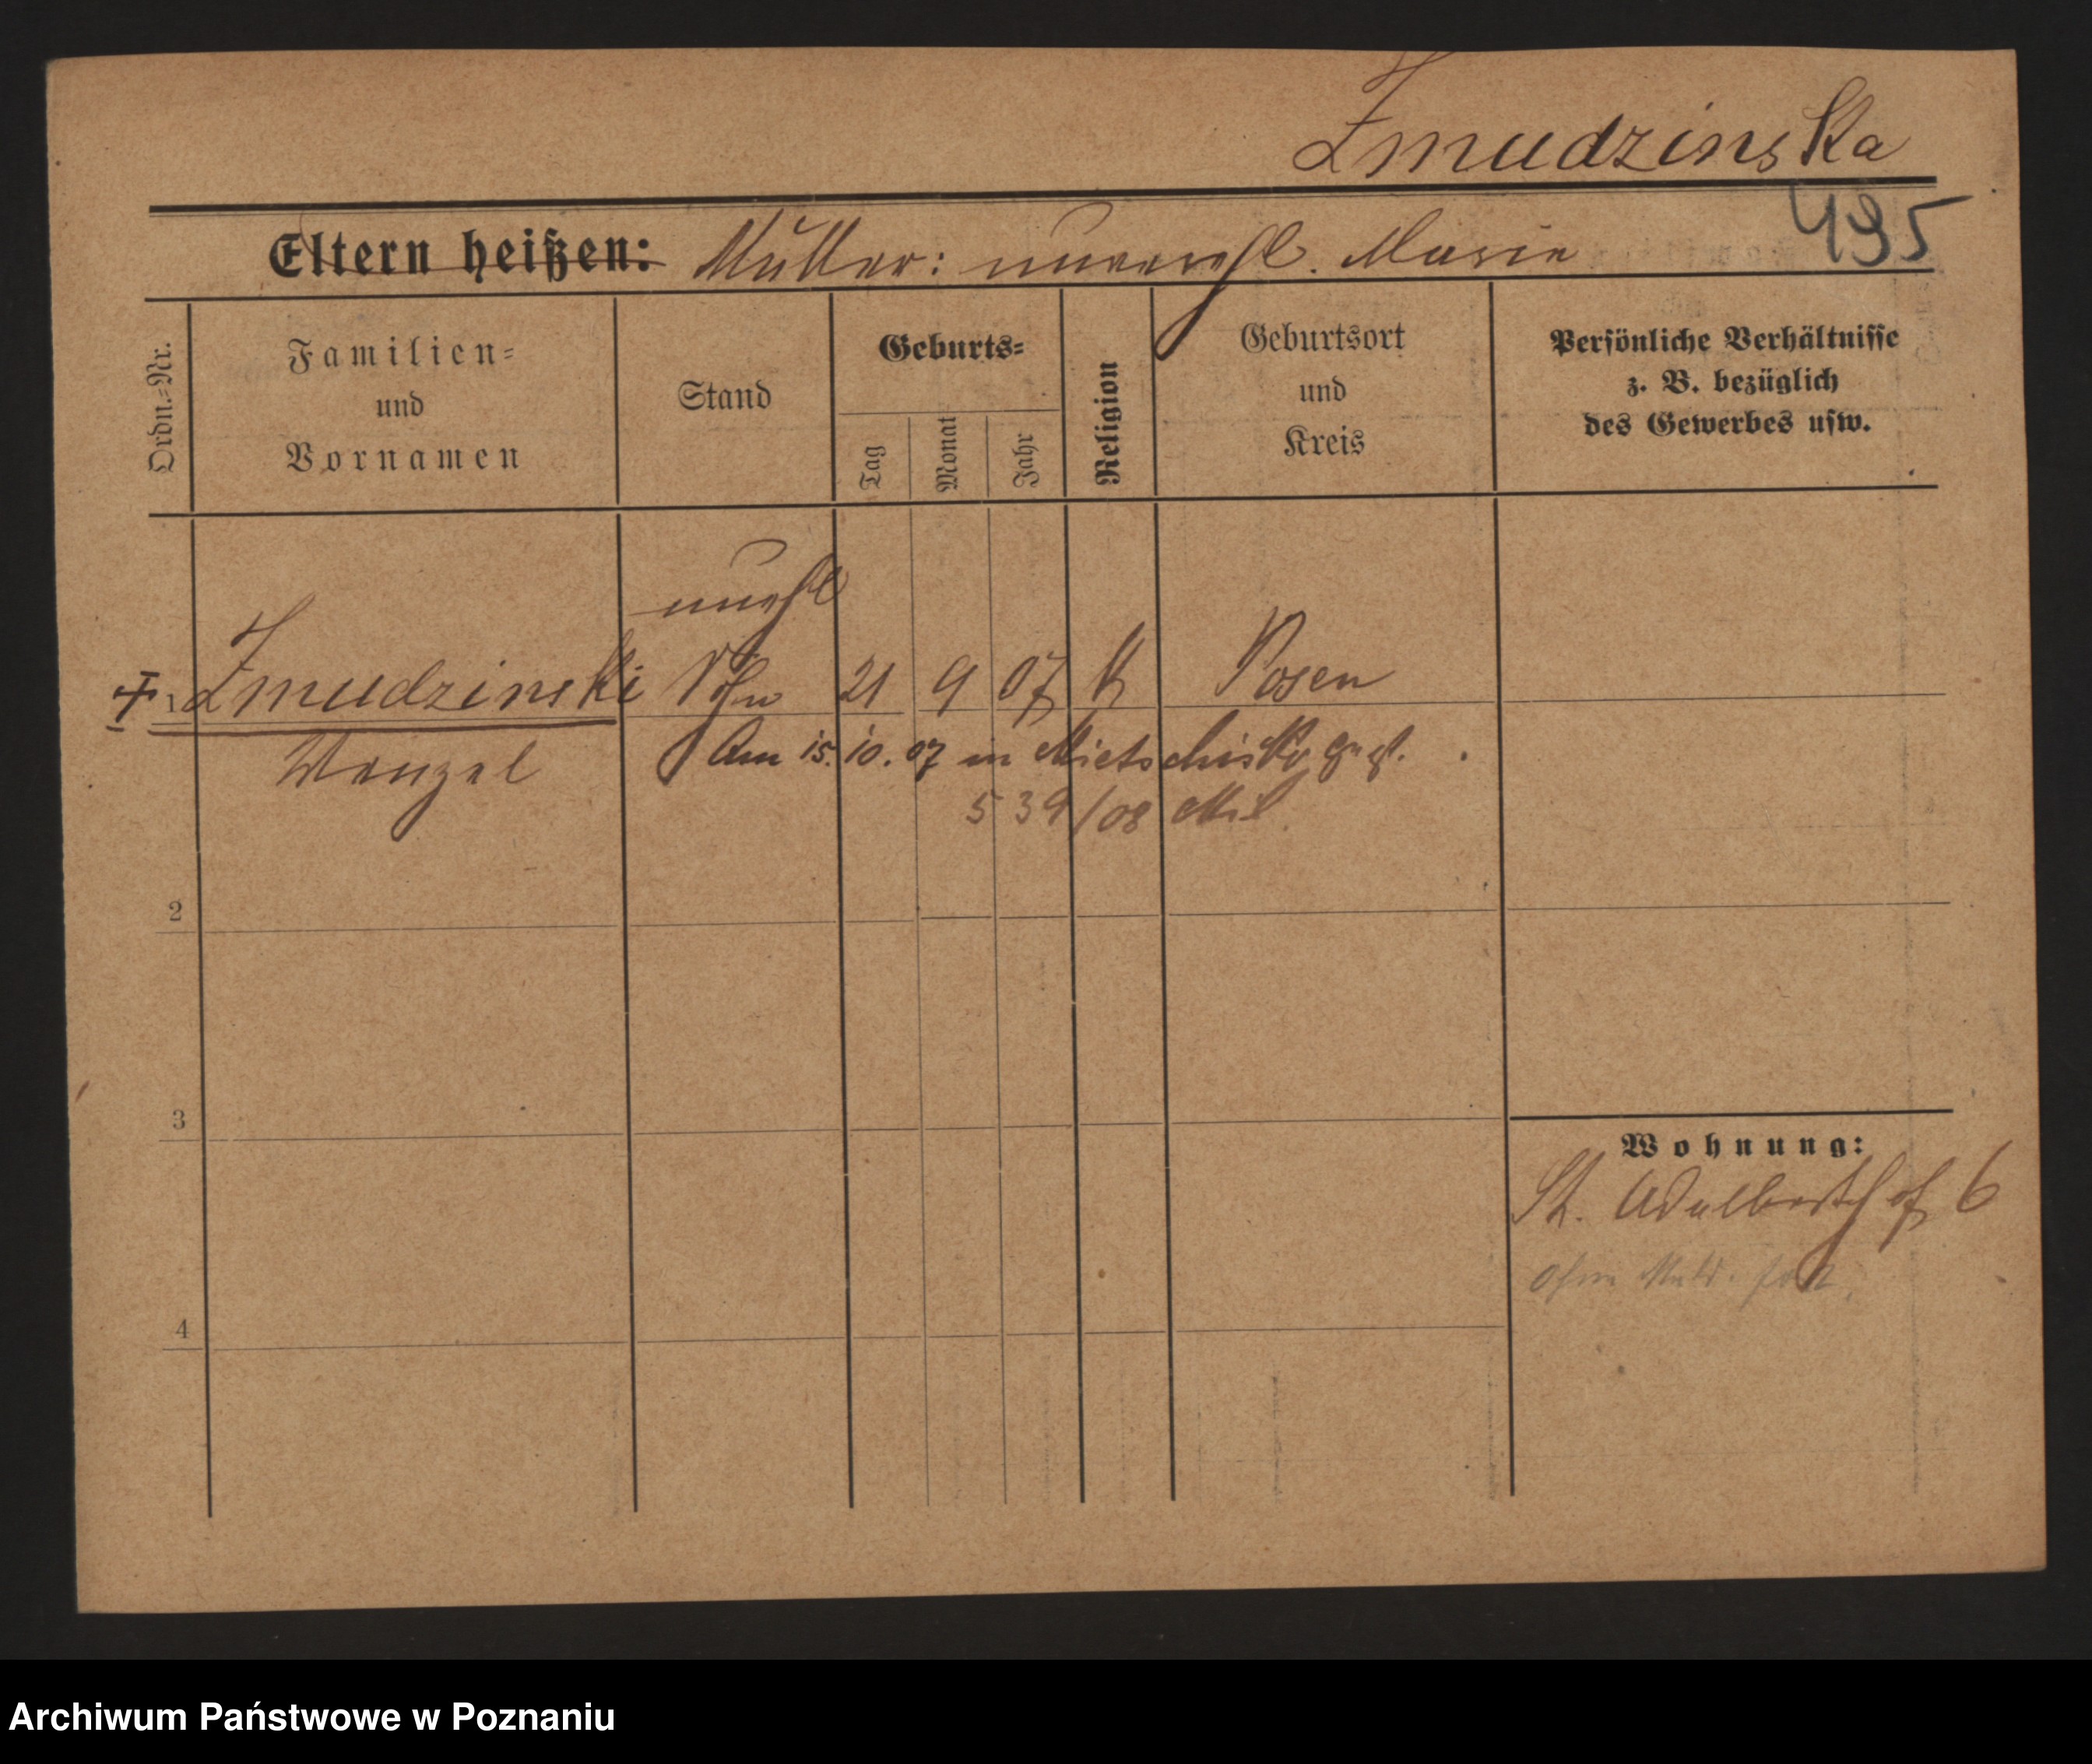 Zmudzinska
495
Eltern heißen: Mutter: unverehl. Marie
Ordn.-Nr.
Familien-
und
Vornamen
Stand
Geburts-
Tag
Monat
Jahr
Religion
Geburtsort
und
Kreis
Persönliche Verhältnisse
z. B. bezüglich
des Gewerbes usw.
unehl
† 1 Zmudzinski Sohn 21 9 07 K Posen
Wenzel
Am 15. 10. 07 in gest.
539/08 Mil.
2
3
4
Wohnung:
St. Adalberth of 6
ohne
Archiwum Państwowe w Poznaniu